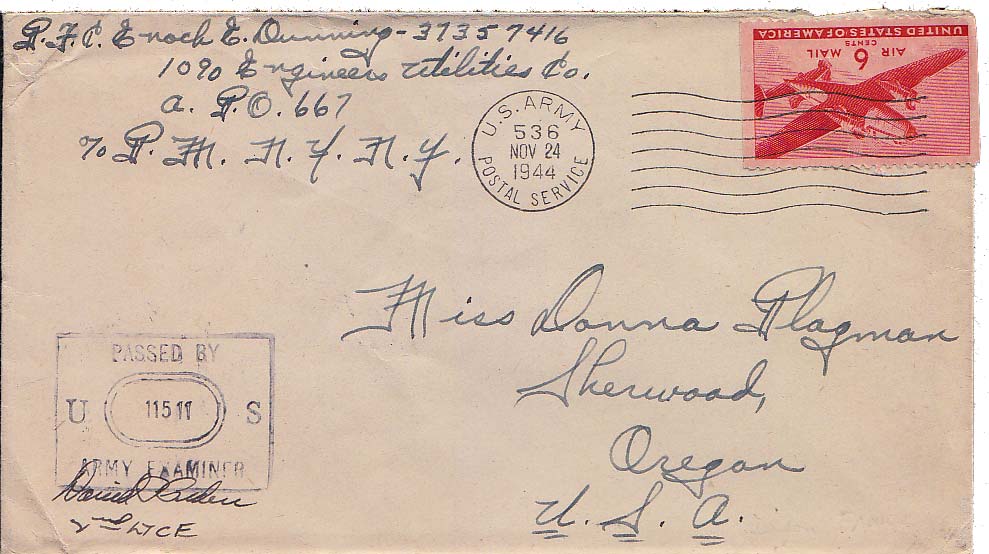 P.F.C. Enoch E. Dunning - 37357416
1090 Engineers Utilities Co.
A. P.O. 667
℅ P. M. N. Y. N. Y.
U.S. ARMY
536
NOV 24
1944
POSTAL SERVICE
UNITED STATES OF AMERICA
AIR 6 MAIL
CENTS
Miss Donna Plagman
Sherwood,
Oregon
U. S. A.
PASSED BY
U 11511 S
ARMY EXAMINER
2nd LT CE